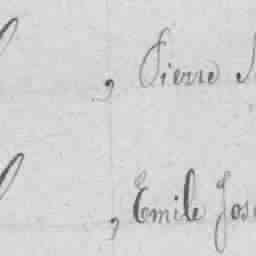 , Pierre
, Emile Jos